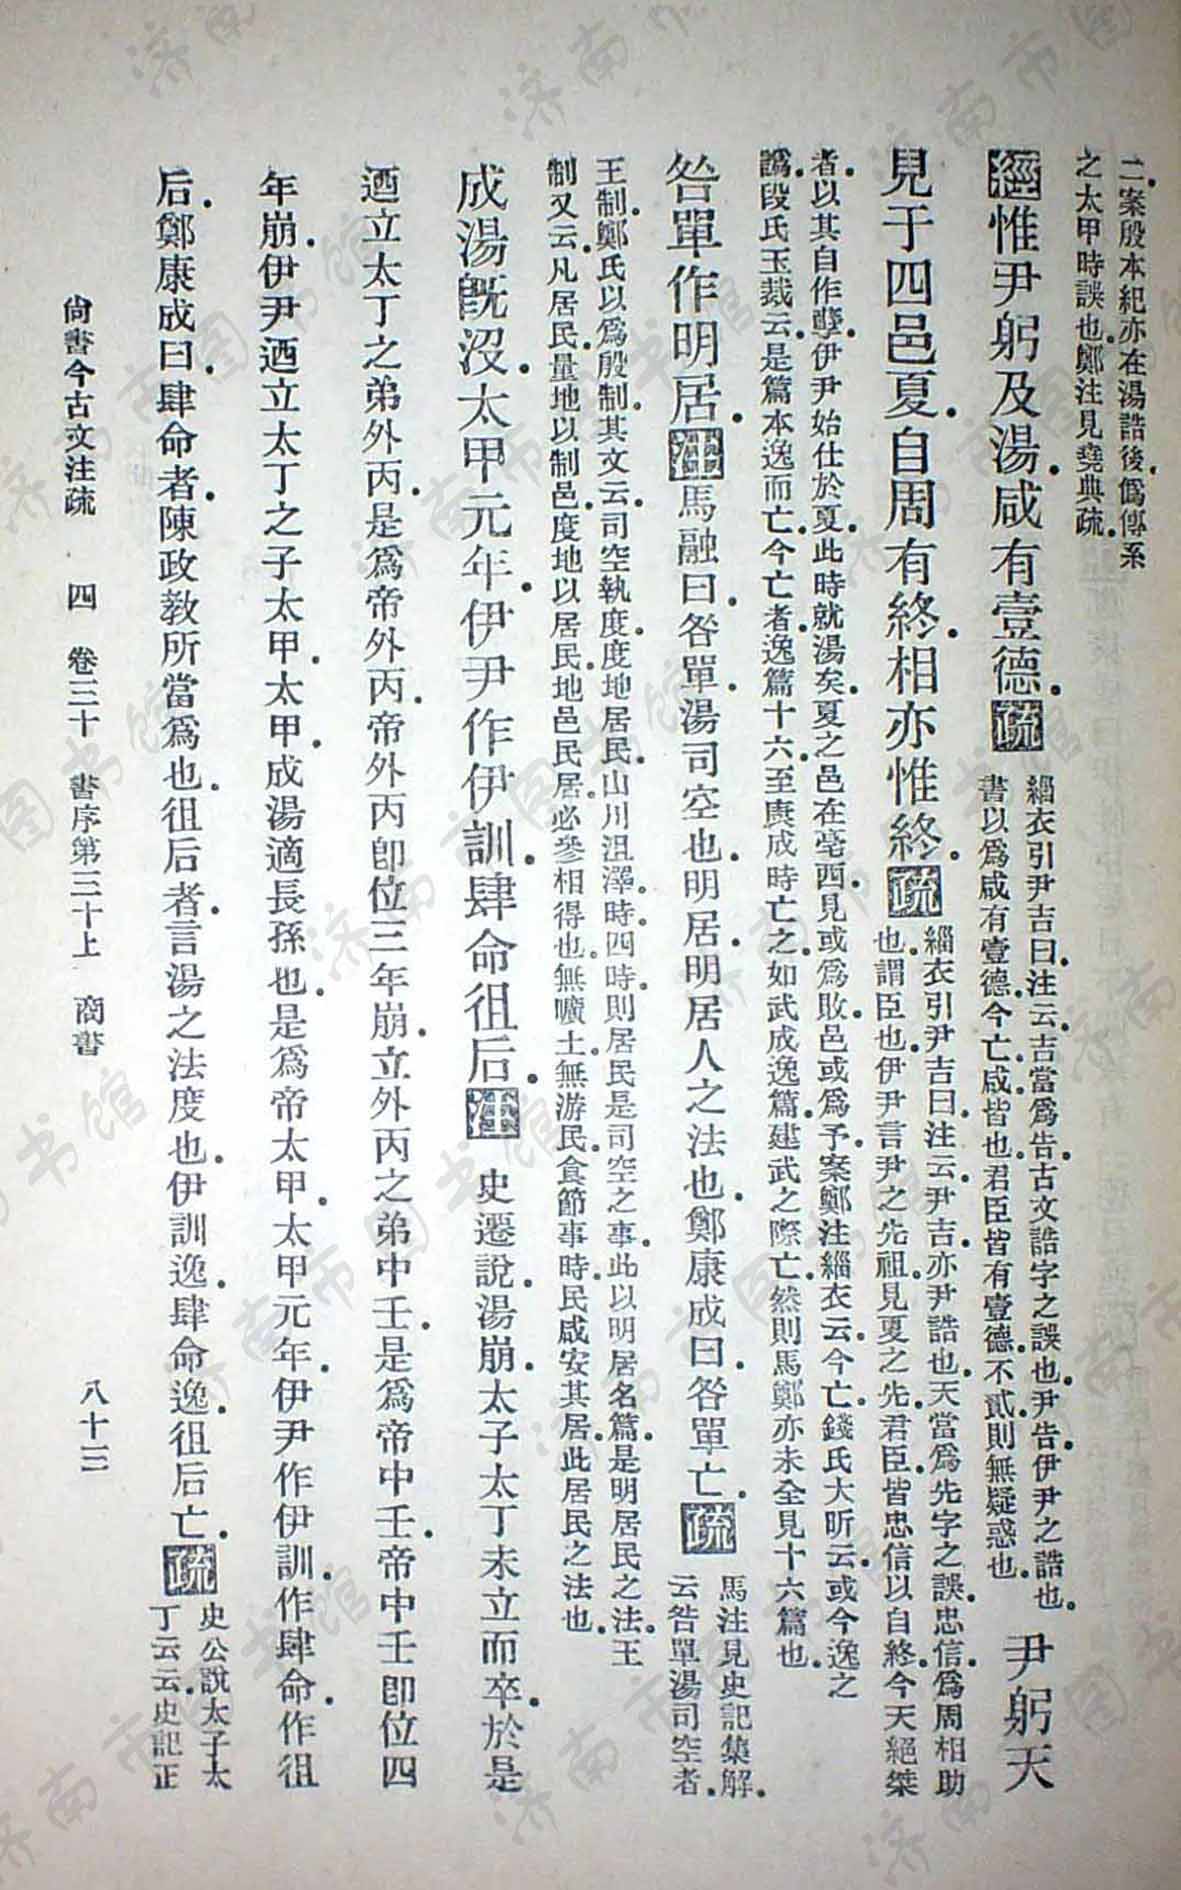 二。案殷本紀亦在湯誥後。僞傳系
之太甲時。誤也。鄭注見堯典疏。
經惟尹躬及湯。咸有壹德。疏
緇衣引尹吉曰。注云。吉當爲告。古文誥。字之誤也。尹告。伊尹之誥也。
書以爲咸有壹德。今亡。咸。皆也。君臣皆有壹德。不貳。則無疑惑也。
尹躬天
見于四邑夏。自周有終。相亦惟終。疏
緇衣引尹吉曰。注云。尹吉。亦尹誥也。天當爲先字之誤。忠信爲周。相。助
也。謂臣也。伊尹言尹之先祖。見夏之先君臣。皆忠信以自終。今天絕桀
者。以其自作孽。伊尹始仕於夏。此時就湯矣。夏之邑在亳西。見或爲敗。邑或爲予。案鄭注緇衣云。今亡。錢氏大昕云。或今逸之
譌。段氏玉裁云。是篇本逸而亡。今亡者。逸篇十六。至康成時亡之。如武成逸篇。建武之際亡。然則馬鄭亦未全見十六篇也。
咎單作明居。注馬融曰。咎單。湯司空也。明居。明居人之法也。鄭康成曰。咎單亡。疏
馬注見史記集解。
云咎單湯司空者。
王制。鄭氏以爲殷制。其文云。司空執度度地。居民。山川沮澤。時四時。則居民是司空之事。此以明居名篇。是明居民之法。王
制又云。凡居民。量地以制邑。度地以居民。地邑民居。必參相得也。無曠土。無游民。食節事時。民咸安其居。此居民之法也。
成湯旣沒。太甲元年。伊尹作伊訓。肆命。徂后。注史遷說。湯崩。太子太丁未立而卒。於是
迺立太丁之弟外丙。是爲帝外丙。帝外丙卽位三年崩。立外丙之弟中壬。是爲帝中壬。帝中壬卽位四
年崩。伊尹迺立太丁之子太甲。太甲。成湯適長孫也。是爲帝太甲。太甲元年。伊尹作伊訓。作肆命。作徂
后。鄭康成曰。肆命者。陳政敎所當爲也。徂后者。言湯之法度也。伊訓逸。肆命逸。徂后亡。疏
史公說太子太
丁云云。史記正
尙書今古文注疏 四 卷三十 書序第三十上 商書 八十三